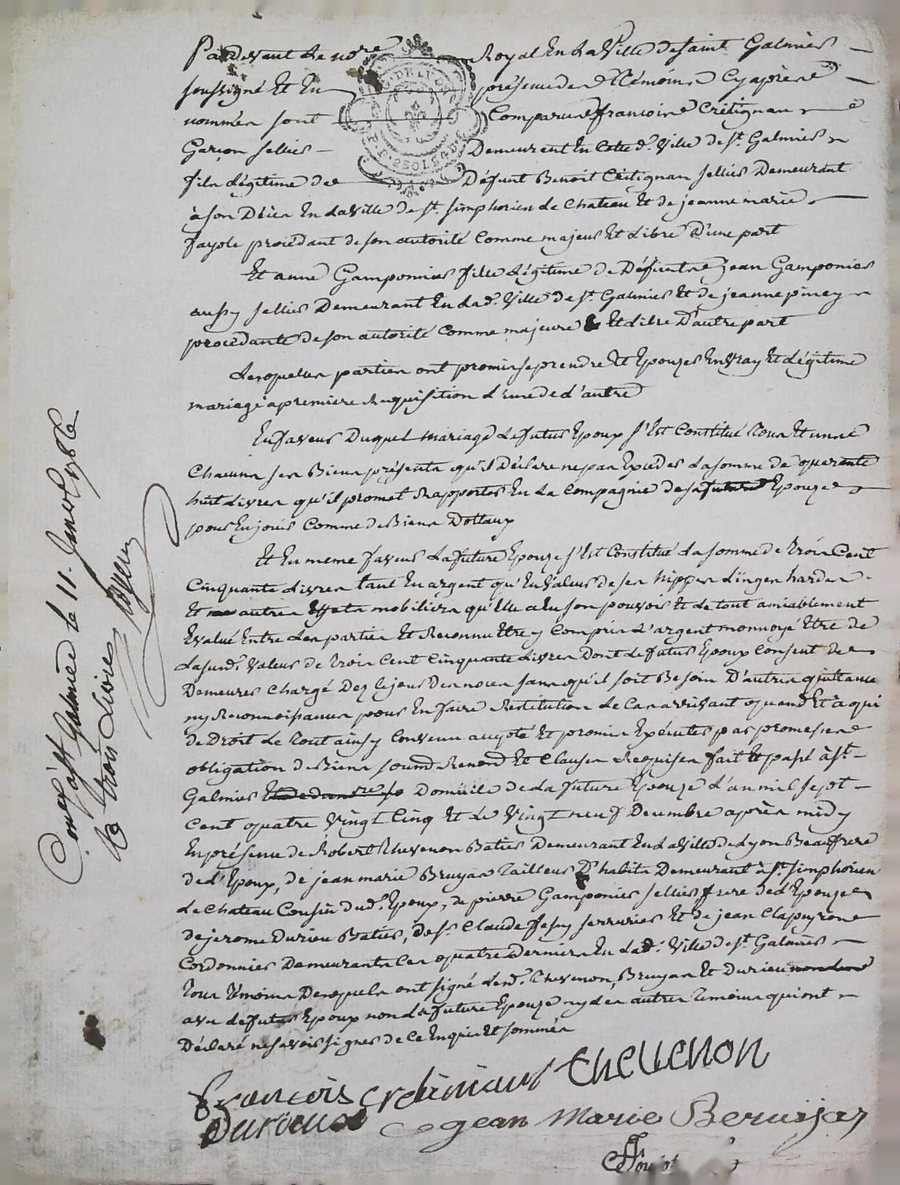 Pardevant Le no.re Royal En La Ville de Saint Galmier
soussigné Et En présence des témoins Cyaprès
nommés sont Comparus françois Crétignan
Garçon Sellier Demeurant En Cette d. Ville de St. Galmier
fils Légitime de Défunt Benoit Crétignan Sellier Demeurant
à son Décès En La Ville de St. simphorien de Chateau Et de jeanne marie
fayole procédant de son autorité Comme majeur Et Libre D'une part
Et anne Gamponnier fille Légitime de Défunt jean Gamponier
aussy sellier Demeurant En Lad. Ville de St. Galmier Et de jeanne piney
procédante de son autorité Comme majeure Et Libre D'autre part
Lesquelles parties ont promis se prendre Et Epouzer En Vray Et Légitime
mariage a premiere Requisition d'une de d'autre
En faveur Duquel mariage Le futur Epoux s'Est Constitué tous Et uns
Chacuns ses Biens présents qu'il Déclare ne pas Exceder La somme de quarante
huit Livres qu'il promet Rapporter En La Compagnie de sa future Epouze
pour En jouir Comme de Biens Dottaux
Et En meme faveur La future Epouze s'Est Constitué La somme de trois Cent
Cinquante Livres tant En argent qu'En Valeur de ses nippes Linges hardes
Et autres Effets mobiliers qu'Elle a En son pouvoir Et le tout amiablement
Evalué Entre Les parties Et Reconnu Etre y Compris L'argent monnoyé Etre de
La susd. Valeur de trois Cent Cinquante Livres Dont Le futur Epoux Consent de
Demeurer Chargé Dez Le jour des noces sans qu'il soit Besoin D'autres quittance
ny Reconnoissances pour En faire Restitution le Cas arrivant quand Et à qui
de Droit Le tout ainsy Convenu accepté Et promis Exécuter par promesse
obligation de Biens soumd. Renond. Et Clauses Requises fait Et passé à St.
Galmier Domicile de La future Epouze L'an mil sept
Cent quatre Vingt Cinq Et Le Vingt neuf Décembre après midy
En présence de Robert Thevenon Batier Demeurant En La Ville de Lyon Beaufrere
de L'Epoux, de jean marie Bruyas Tailleur D'habits Demeurant à St. simphorien
Le Chateau Cousin dud. Epoux, de pierre Gamponier sellier frere de L'Epouze
de jerome Durieu Batier, de Sr. Claude serrurier Et de jean Clapeyron
Cordonnier Demeurants Les quatre Derniers En Lad. Ville de St. Galmier
tous témoins Desquels ont signé Lesd. Thevenon, Bruyas Et Durieu
avec Le futur Epoux non La future Epouze ny les autres témoins qui ont
Déclaré ne savoir signer de Ce Enquis Et sommés
françois crétinian Thevenon
Durieu jean Marie Beruijas
Con.lé à St Galmier le 11. Janvier 1786
Rç trois Livres